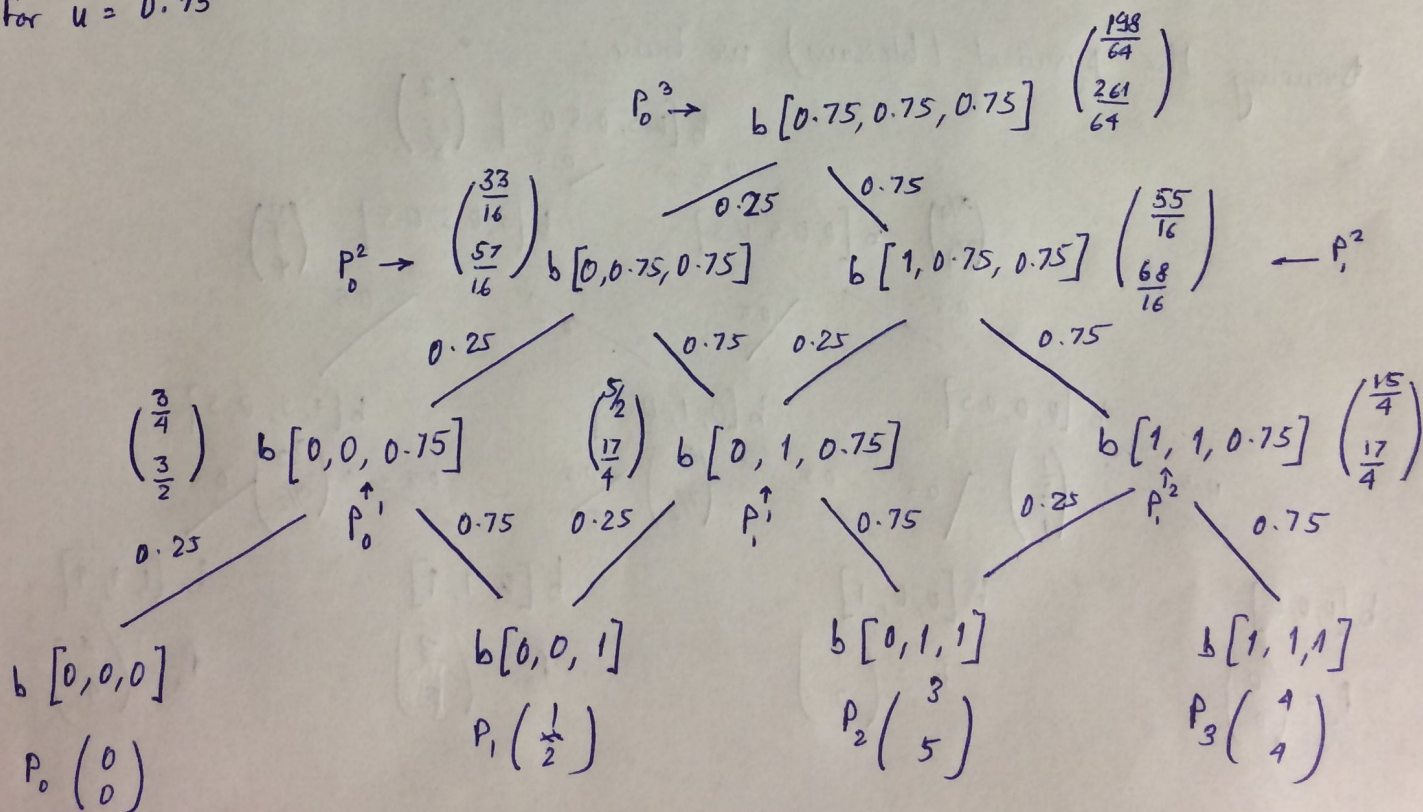 for u = 0.75
P₀³ → b [0.75, 0.75, 0.75] (198/64 261/64)
0.25 0.75
P₀² → (33/16 57/16) b [0, 0.75, 0.75] b [1, 0.75, 0.75] (55/16 68/16) ← P₁²
0.25 0.75 0.25 0.75
(3/4 3/2) b [0, 0, 0.75] (5/2 17/4) b [0, 1, 0.75] b [1, 1, 0.75] (15/4 17/4)
↑ ↑ ↑
P₀¹ P₁¹ P₁²
0.25 0.75 0.25 0.75 0.25 0.75
b [0,0,0] b[0,0,1] b [0,1,1] b [1,1,1]
P₀ (0 0) P₁ (1 2) P₂ (3 5) P₃ (4 4)